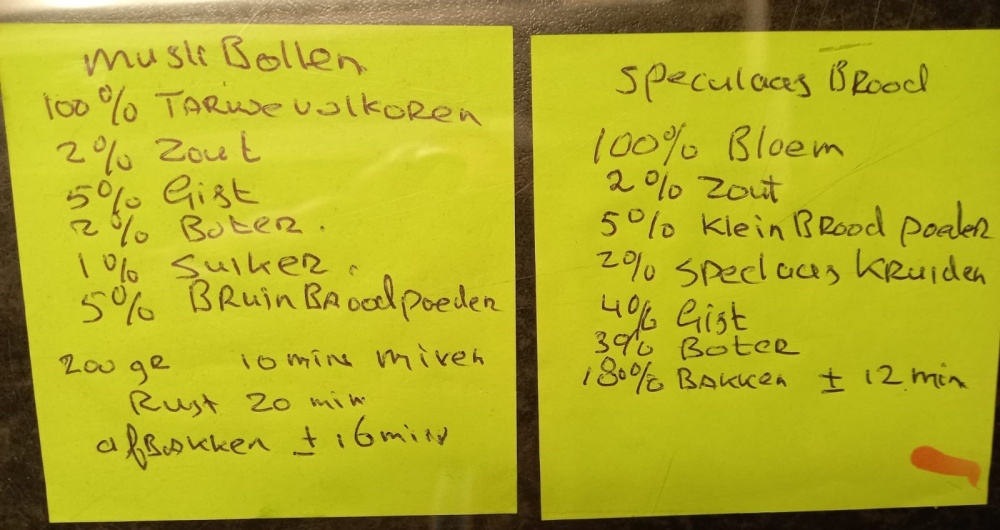 Musli Bollen
100% TARWE VOLKOREN
2% Zout
5% Gist
2% Boter.
1% Suiker.
5% BRuin BRoodpoeder
200 gr 10 min mixen
Rust 20 min
afBakken ± 16 min
Speculaas BRood
100% Bloem
2% Zout
5% Klein BRood poeder
2% Speclaas KRuiden
4% Gist
3% Boter
180% BAKKen ± 12 min